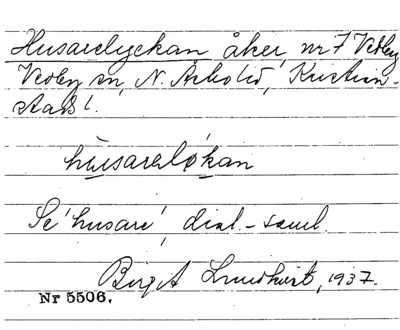 Husarelyckan åker, nr 7 Vedby
Vedby sn, N. Åsbo hd, Kristian-
stads l.
husarelykan
Se 'husare', dial.-saml.
Birgit Lundkvist, 1937.
Nr 5506.